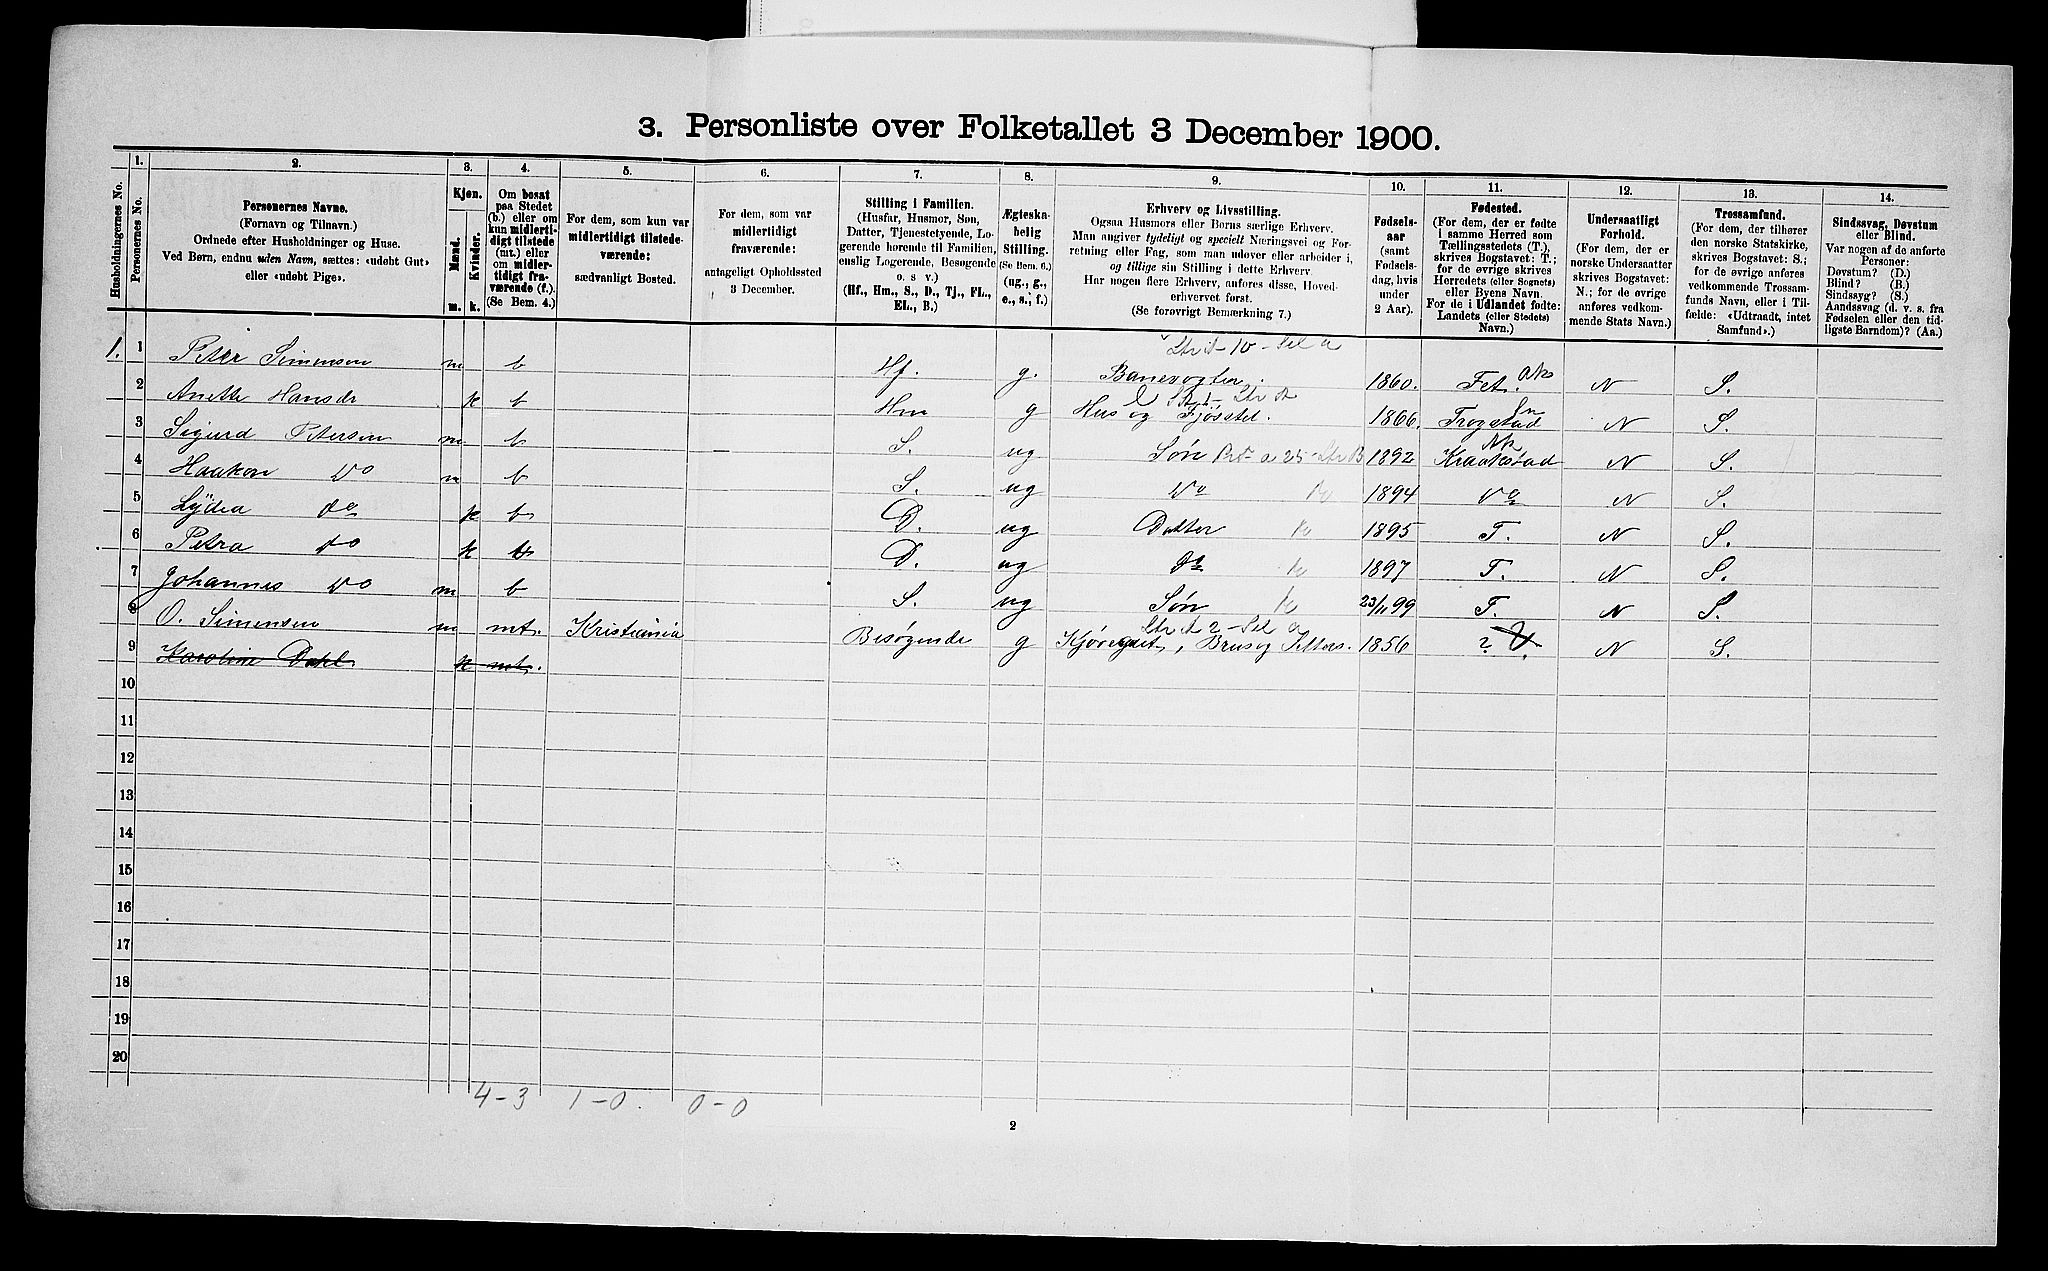 3. Personliste over Folketallet 3 December 1900.
Husholdningernes No.
1. Personernes No.
2. Personernes Navne.
(Fornavn og Tilnavn.)
Ordnede efter Husholdninger og Huse.
Ved Børn, endnu uden Navn, sættes: «udøbt Gut»
eller «udøbt Pige».
3. Kjøn.
Mænd. Kvinder.
m. k.
4. Om bosat
paa Stedet
(b.) eller om
kun midlerti-
digt tilstede
(mt.) eller
om midler-
tidigt fra-
værende (f.).
(Se Bem. 4.)
5. For dem, som kun var
midlertidigt tilstede-
værende:
sædvanligt Bosted.
6. For dem, som var
midlertidigt
fraværende:
antageligt Opholdssted
3 December.
7. Stilling i Familien.
(Husfar, Husmor, Søn,
Datter, Tjenestetyende, Lo-
gerende hørende til Familien,
enslig Logerende, Besøgende
o. s v.)
(Hf., Hm., S., D., Tj., FL.,
EL., B.)
8. Ægteska-
belig
Stilling.
(Se Bem. 6.)
(ug., g.,
e., s., f.)
9. Erhverv og Livsstilling.
Ogsaa Husmors eller Børns særlige Erhverv.
Man angiver tydeligt og specielt Næringsvei og For-
retning eller Fag, som man udøver eller arbeider i,
og tillige sin Stilling i dette Erhverv.
Har nogen flere Erhverv, anføres disse, Hoved-
erhvervet først.
(Se forøvrigt Bemærkning 7.)
10. Fødsels-
aar
(samt
Fødsels-
dag, hvis
under
2 Aar).
11. Fødested.
(For dem, der er fødte
i samme Herred som
Tællingsstedets (T.),
skrives Bogstavet: T.;
for de øvrige skrives
Herredets (eller Sognets)
eller Byens Navn.
For de i Udlandet fødte:
Landets (eller Stedets)
Navn.)
12. Undersaatligt
Forhold.
(For dem, der er
norske Undersaatter
skrives Bogstavet:
N.; for de øvrige
anføres vedkom-
mende Stats Navn.)
13. Trossamfund.
(For dem, der tilhører
den norske Statskirke,
skrives Bogstavet: S.;
for de øvrige anføres
vedkommende Trossam-
funds Navn, eller i Til-
fælde: «Udtraadt, intet
Samfund».)
14. Sindssvag, Døvstum
eller Blind.
Var nogen af de anførte
Personer:
Døvstum? (D.)
Blind? (B.)
Sindssyg? (S.)
Aandssvag (d. v. s. fra
Fødselen eller den tid-
ligste Barndom)? (Aa.)
1. 1 Peter Simensen m b Hf. g. Banevogter. 1860. Fet. Ak N S.
2 Anette Hansdr k b Hm g Hus og Fjøsstel. 1866. Trogstad Sm N S.
3 Sigurd Petersen m b S. ug Søn 1892 Kraakstad Ak N S.
4 Haakon do m b S. ug do 1894 do N S.
5 Lydia do k b D. ug Datter 1895 T. N S.
6 Petra do k b D. ug do 1897 T. N S.
7 Johannes do m b S. ug Søn 23/11 99 T. N S.
8 O. Simensen m mt. Kristiania Besøgende g , Brus og Selters. 1856 ? N S.
9 Karoline Dahl k mt.
10
11
12
13
14
15
16
17
18
19
20
4-3 1-0. 0-0
2